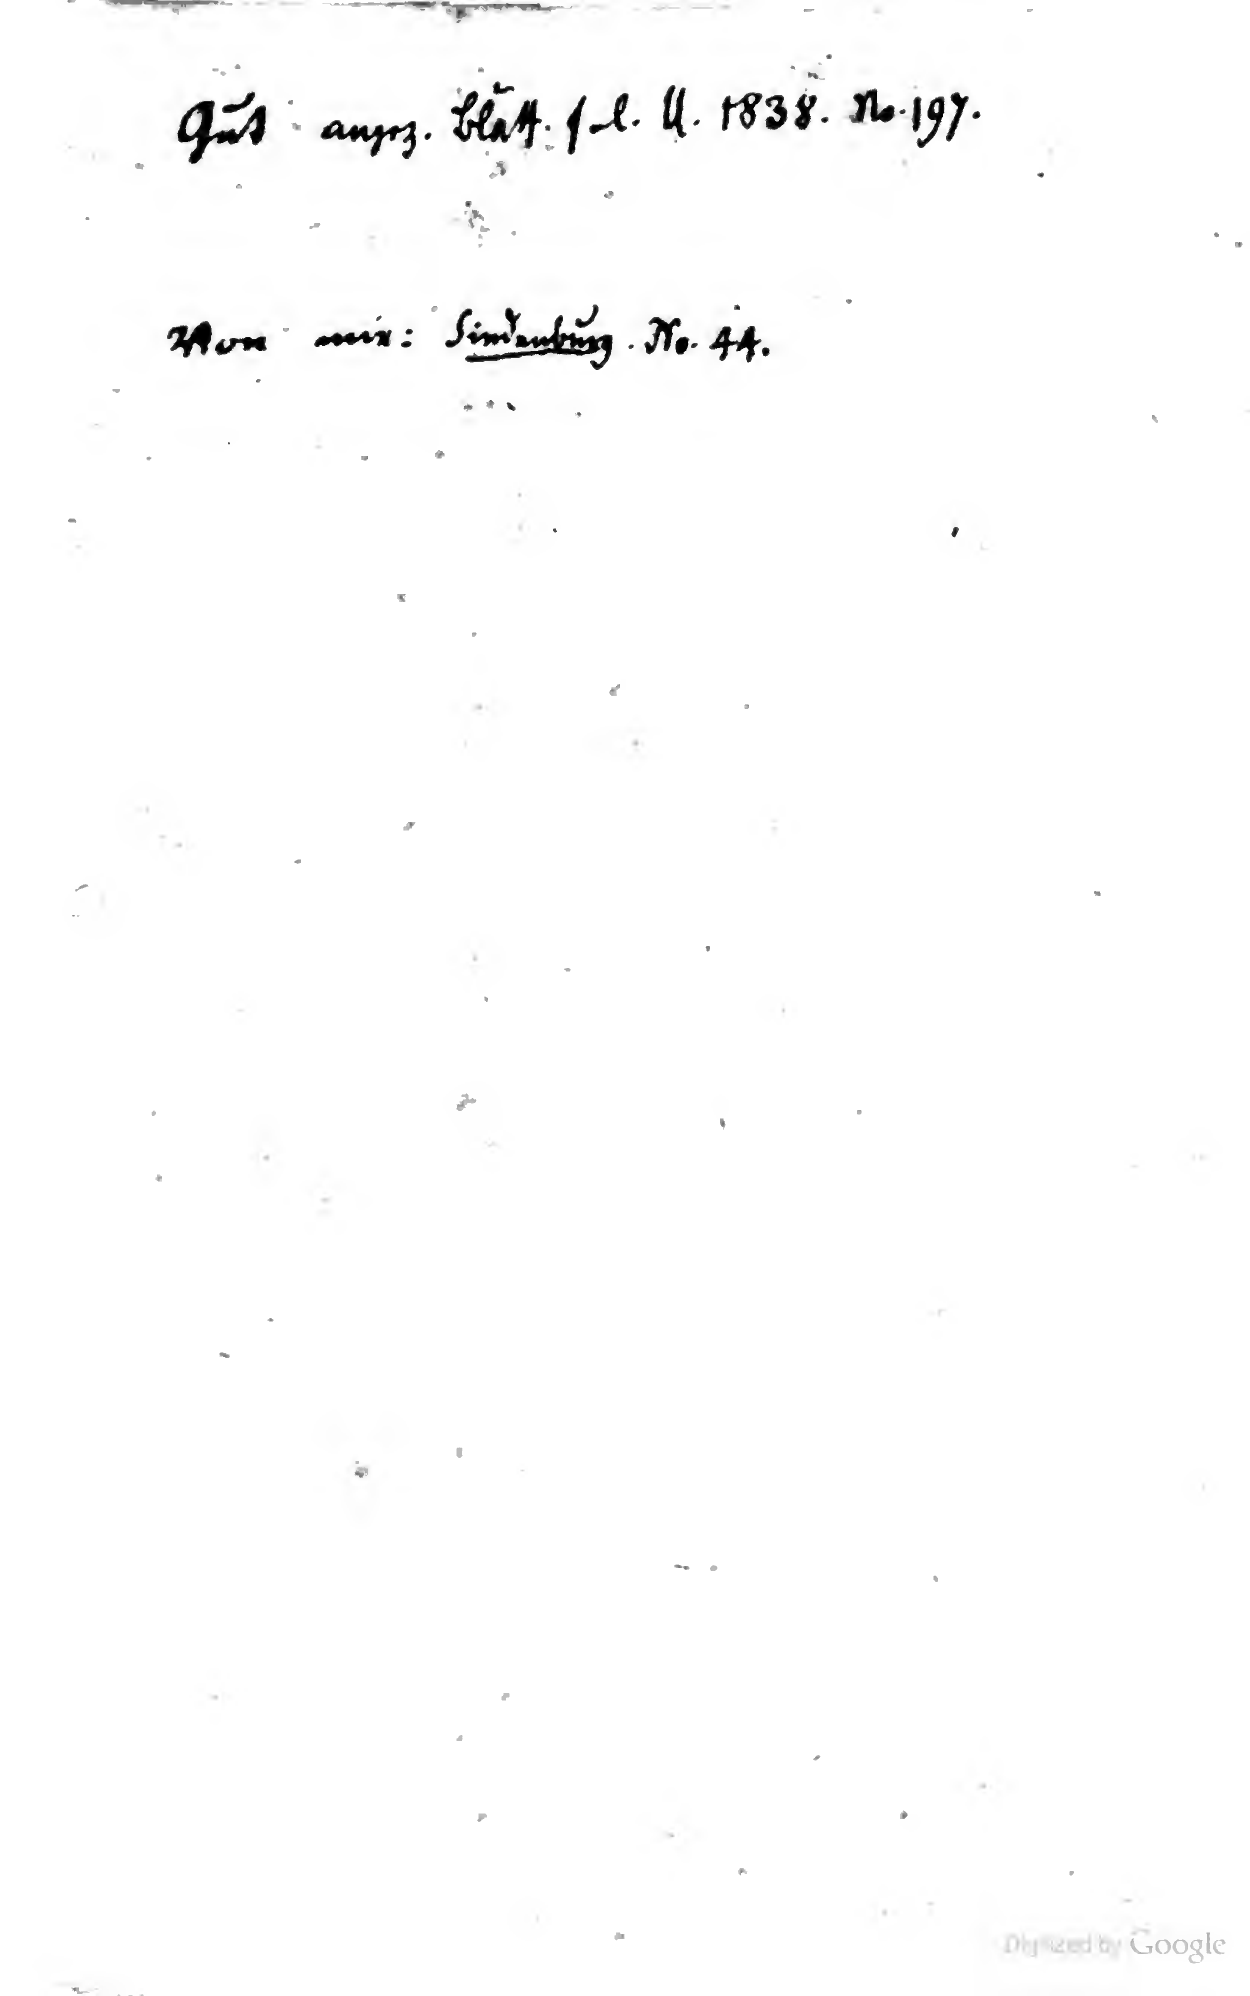 Gut angez. Blätt. f. l. U. 1838. No. 197.
Von mir: Lindenburg. No. 44.
Digitized by Google